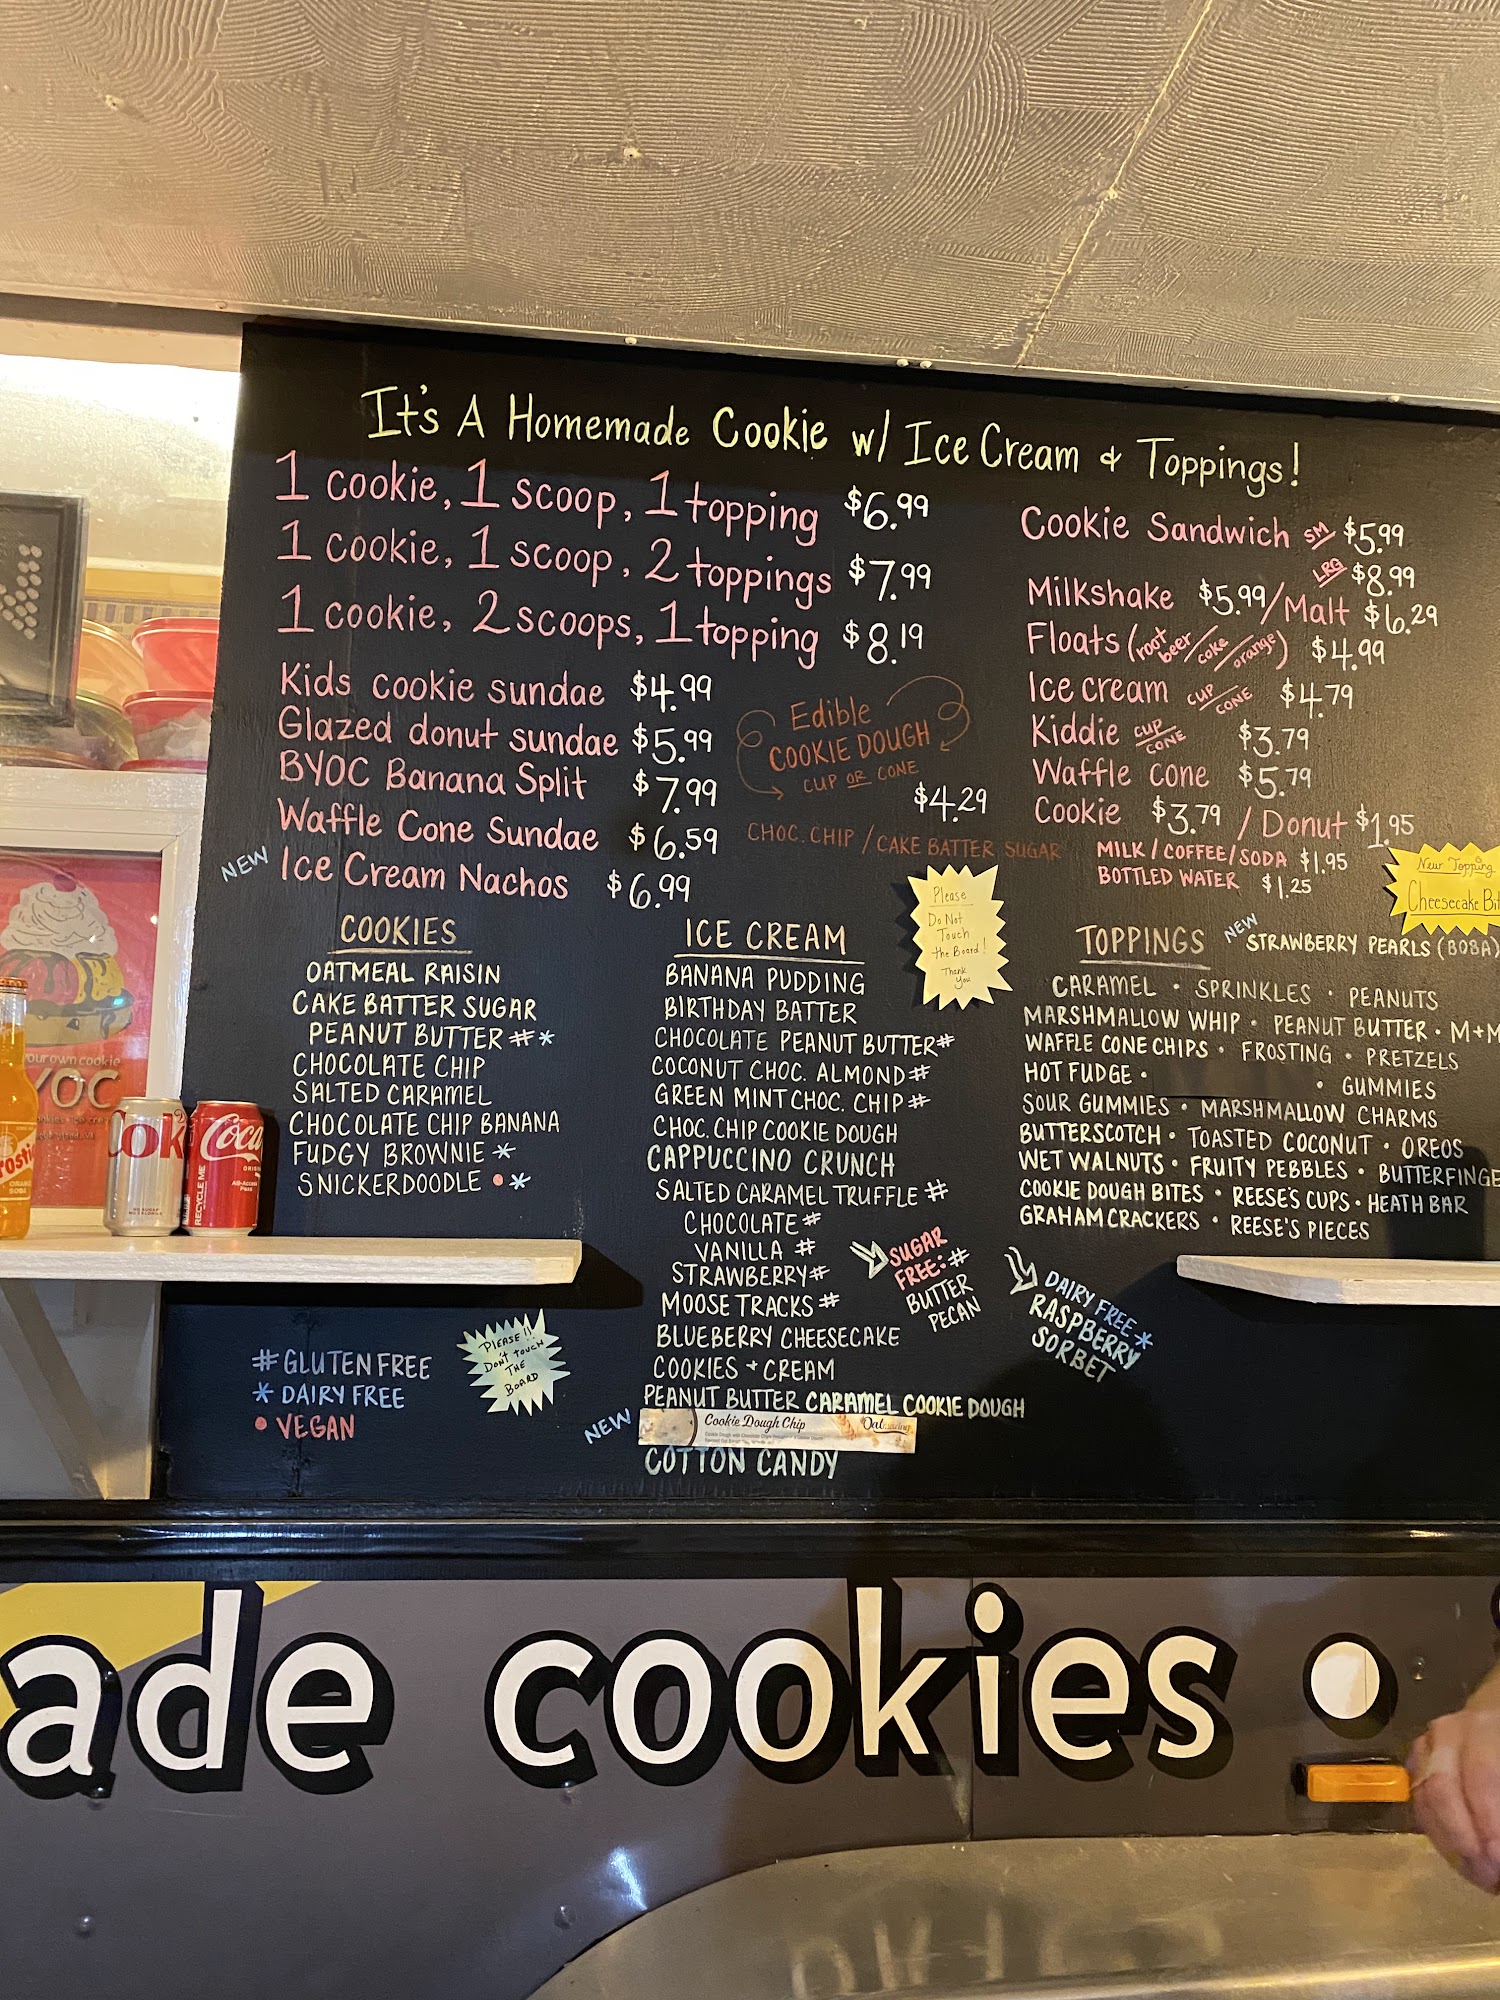 It's A Homemade Cookie w/ Ice Cream & Toppings!
1 cookie, 1 scoop, 1 topping $6.99
1 cookie, 1 scoop, 2 toppings $7.99
1 cookie, 2 scoops, 1 topping $8.19
Kids cookie sundae $4.99
Glazed donut sundae $5.99
BYOC Banana Split $7.99
Waffle Cone Sundae $6.59
NEW Ice Cream Nachos $6.99
Edible
COOKIE DOUGH
CUP OR CONE
$4.29
CHOC. CHIP / CAKE BATTER SUGAR
Cookie Sandwich SM $5.99
LRG $8.99
Milkshake $5.99/Malt $6.29
Floats (root beer/coke/orange) $4.99
Ice cream CUP/CONE $4.79
Kiddie CUP/CONE $3.79
Waffle cone $5.79
Cookie $3.79 / Donut $1.95
MILK / COFFEE / SODA $1.95
BOTTLED WATER $1.25
New Topping
Cheesecake Bit
Please
Do Not
Touch
the Board!
Thank
You
COOKIES
OATMEAL RAISIN
CAKE BATTER SUGAR
PEANUT BUTTER # *
CHOCOLATE CHIP
SALTED CARAMEL
CHOCOLATE CHIP BANANA
FUDGY BROWNIE *
SNICKERDOODLE • *
ICE CREAM
BANANA PUDDING
BIRTHDAY BATTER
CHOCOLATE PEANUT BUTTER #
COCONUT CHOC. ALMOND #
GREEN MINT CHOC. CHIP #
CHOC. CHIP COOKIE DOUGH
CAPPUCCINO CRUNCH
SALTED CARAMEL TRUFFLE #
CHOCOLATE #
VANILLA #
STRAWBERRY #
MOOSE TRACKS #
BLUEBERRY CHEESECAKE
COOKIES + CREAM
PEANUT BUTTER CARAMEL COOKIE DOUGH
NEW
Cookie Dough Chip
COTTON CANDY
SUGAR
FREE: #
BUTTER
PECAN
DAIRY FREE *
RASPBERRY
SORBET
TOPPINGS NEW STRAWBERRY PEARLS (BOBA)
CARAMEL • SPRINKLES • PEANUTS
MARSHMALLOW WHIP • PEANUT BUTTER • M+M
WAFFLE CONE CHIPS • FROSTING • PRETZELS
HOT FUDGE • • GUMMIES
SOUR GUMMIES • MARSHMALLOW CHARMS
BUTTERSCOTCH • TOASTED COCONUT • OREOS
WET WALNUTS • FRUITY PEBBLES • BUTTERFINGE
COOKIE DOUGH BITES • REESE'S CUPS • HEATH BAR
GRAHAM CRACKERS • REESE'S PIECES
# GLUTEN FREE
* DAIRY FREE
• VEGAN
PLEASE!!
DON'T TOUCH
THE
BOARD
your own cookie
YOC
Cok
Coca
RECYCLE ME
ORANGE
SODA
ade cookies •